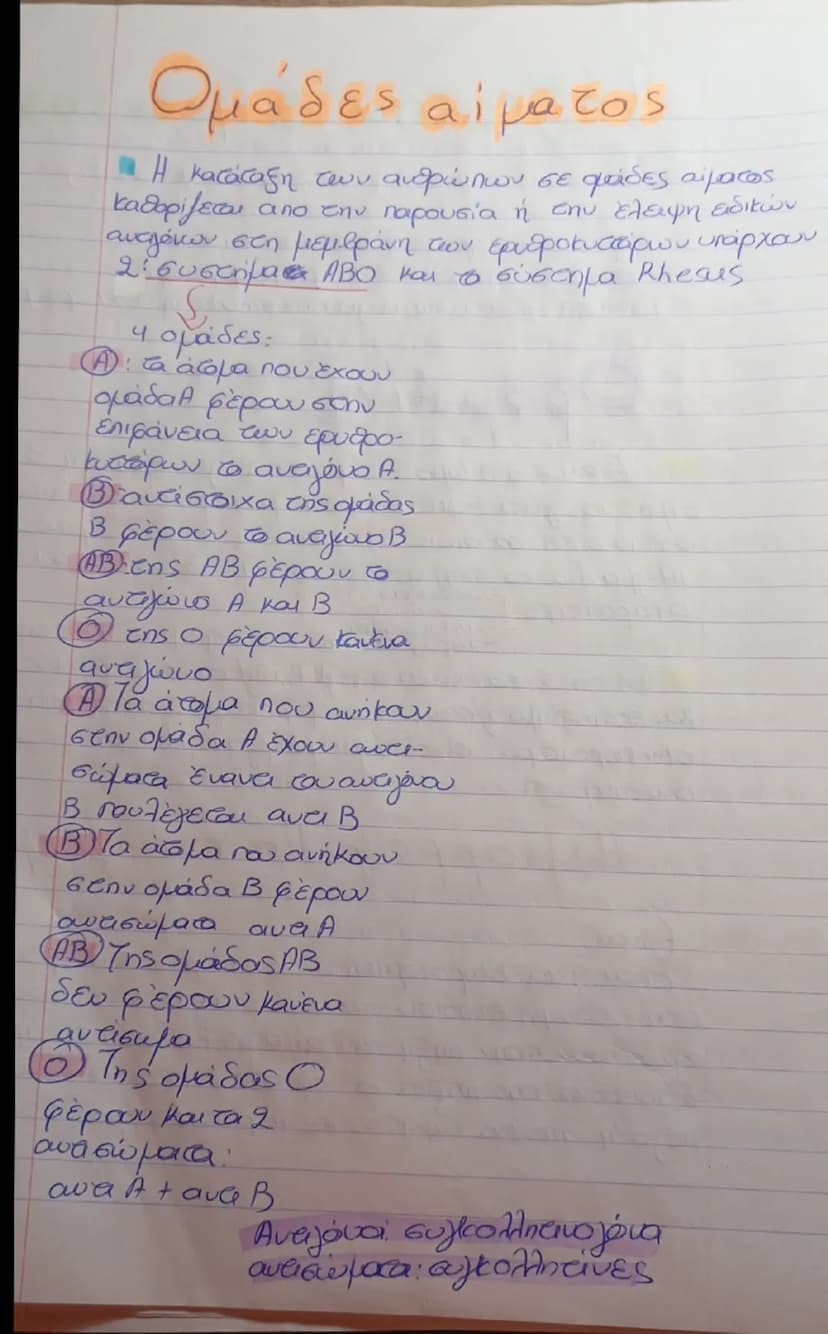 Ομάδες αίματος
Η κατάταξη των ανθρώπων σε ομάδες αίματος
καθορίζεται απο την παρουσία ή την έλειψη ειδικών
αντιγόνων στη μεμβράνη των ερυθροκυττάρων υπάρχουν
2: συστήματα ABO και το σύστημα Rhesus
4 ομάδες:
Α: τα άτομα που έχουν
ομάδα Α φέρουν στην
επιφάνεια των ερυθρο-
κυττάρων το αντιγόνο Α.
Β αντίστοιχα της ομάδας
Β φέρουν το αντιγόνο Β
ΑΒ: της ΑΒ φέρουν το
αντιγόνο Α και Β
Ο της Ο φέρουν κανένα
αντιγόνο
Α Τα άτομα που ανήκουν
στην ομάδα Α έχουν αντι-
σώματα έναντι του αντιγόνου
Β που λέγεται αντι Β
Β Τα άτομα που ανήκουν
στην ομάδα Β φέρουν
αντισώματα αντι Α
ΑΒ Της ομάδας ΑΒ
δεν φέρουν κανένα
αντίσωμα
Ο Της ομάδας Ο
φέρουν και τα 2
αντισώματα:
αντι Α + αντι Β
Αντιγόνα: συγκολλητινογόνα
αντισώματα: συγκολλητίνες